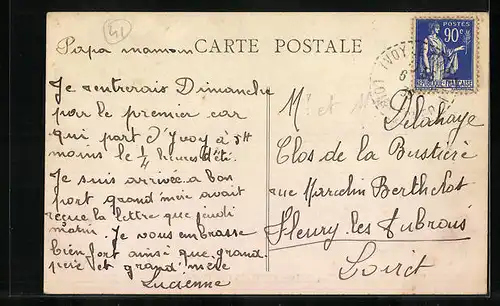 41
Papa maman CARTE POSTALE
Je rentrerais Dimanche
par le premier car
qui part d'Yvoy à 5H
moins le 1/4 heures d'été.
Je suis arrivée a bon
port grand mère avait
reçue la lettre que jeudi
matin. Je vous embrasse
bien fort ainsi que grand
père et grand mère
Lucienne
POSTES
90c
REPUBLIQUE FRANÇAISE
Mr et M
Delahaye
Clos de la Bustière
rue Marcelin Berthelot
Fleury les Aubrais
Loiret